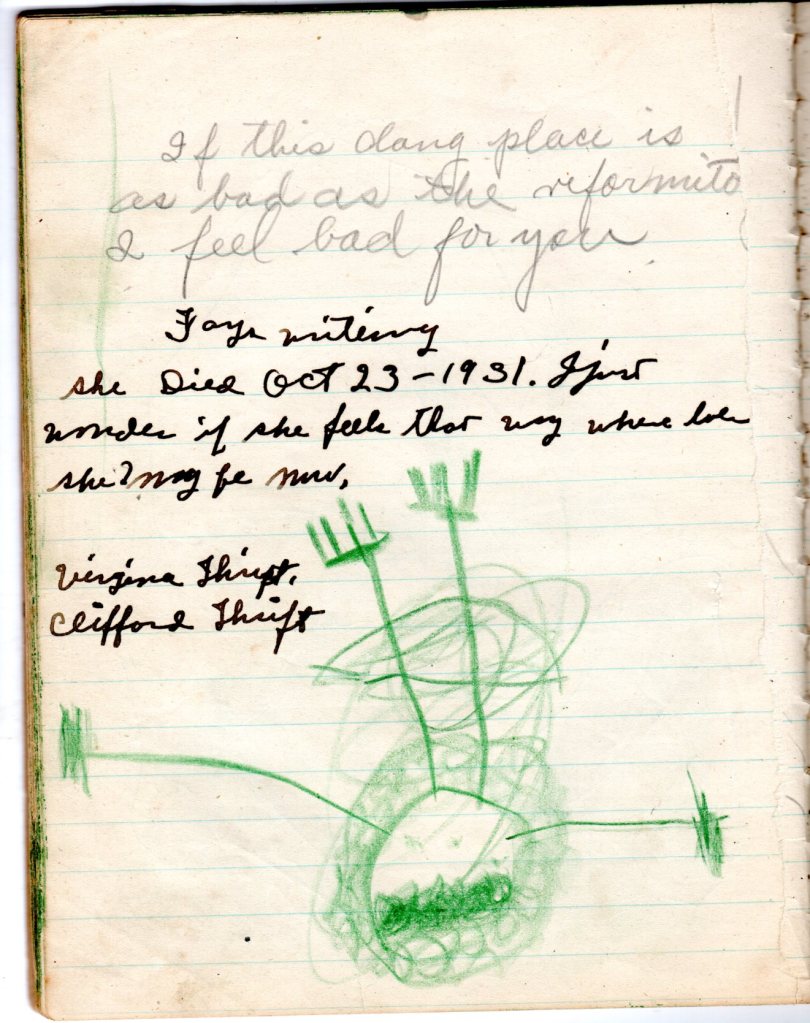 If this dang place is
as bad as the reformito
I feel bad for you
Faye writeing
she Died Oct 23-1931. I just
wonder if she feels that way where ever
she may be now.
Virgina Thrift.
Clifford Thrift